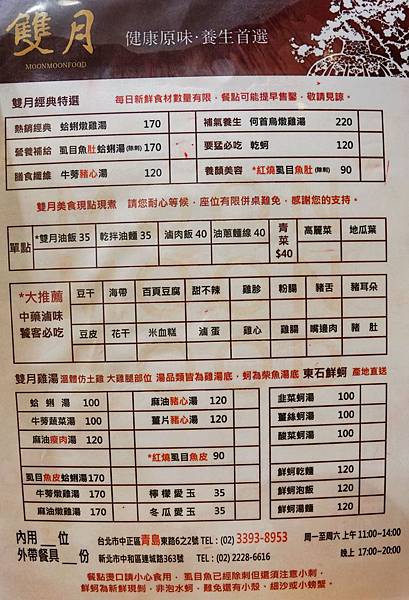 雙月
MOONMOONFOOD
健康原味·養生首選
雙月經典特選 每日新鮮食材數量有限，餐點可能提早售鑿，敬請見諒。
熱銷經典 蛤蜊燉雞湯 170 補氣養生 何首烏燉雞湯 220
營養補給 虱目魚肚蛤蜊湯(除刺) 170 要猛必吃 乾蚵 120
膳食纖維 牛蒡豬心湯 120 養顏美容 *紅燒虱目魚肚(除刺) 90
雙月美食現點現煮 請您耐心等候，座位有限併桌難免，感謝您的支持。
單點 *雙月油飯 35 乾拌油麵 35 滷肉飯 40 油蔥麵線 40 青菜$40 高麗菜 地瓜葉
*大推薦 中藥滷味 饕客必吃
豆干 海帶 百頁豆腐 甜不辣 雞胗 粉腸 豬舌 豬耳朵
豆皮 花干 米血糕 滷蛋 雞心 雞腸 嘴邊肉 豬肚
雙月雞湯 溫體仿土雞 大雞腿部位 湯品類皆為雞湯底，蚵為柴魚湯底 東石鮮蚵 產地直送
蛤蜊湯 100 麻油豬心湯 120 韭菜蚵湯 100
牛蒡蔬菜湯 100 薑片豬心湯 120 薑絲蚵湯 100
麻油瘦肉湯 120 酸菜蚵湯 100
*紅燒虱目魚皮 90
虱目魚皮蛤蜊湯 170 鮮蚵乾麵 120
牛蒡燉雞湯 170 檸檬愛玉 35 鮮蚵泡飯 120
麻油燉雞湯 170 冬瓜愛玉 35 鮮蚵湯麵 120
內用__位 台北市中正區青島東路6之2號 TEL : (02) 3393-8953 周一至周六 上午 11:00~14:00
外帶餐具__份 新北市中和區連城路363號 TEL : (02) 2228-6616 晚上 17:00~20:00
餐點燙口請小心食用，虱目魚已經除刺但還須注意小刺，
鮮蚵為新鮮現剝，非泡水蚵，難免還有小殼、細沙或小螃蟹。